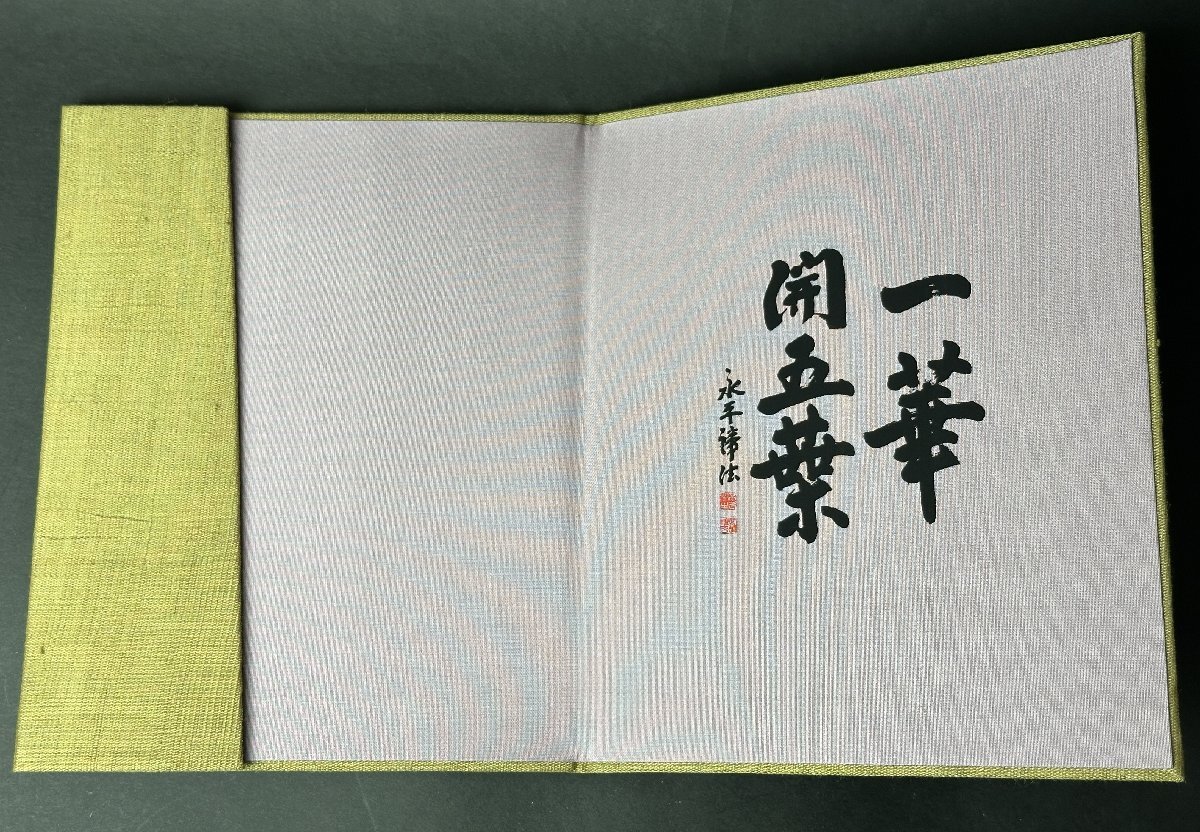 一華
開五葉
永平諦法